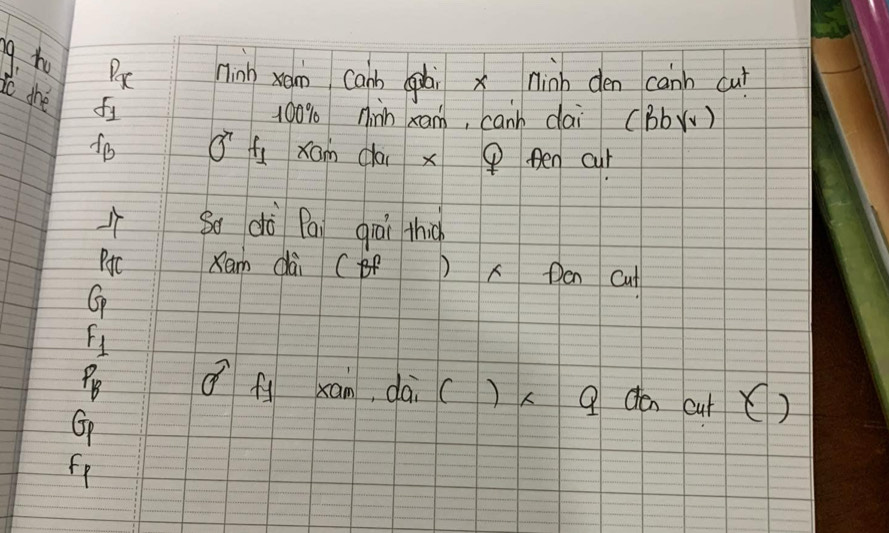 ng, thu
ức thế
Ptc Mình xám, cánh dài x Mình đen cánh cụt
f1 100% Mình xám, cánh dài (BbVv)
fB ♂ f1 xám dài x ♀ Đen cụt
Sơ đồ lai giải thích
Ptc Xám dài ( ) x Đen cụt
Gp
F1
PB ♂ f1 xám, dài ( ) x ♀ đen cụt ( )
Gp
Fp